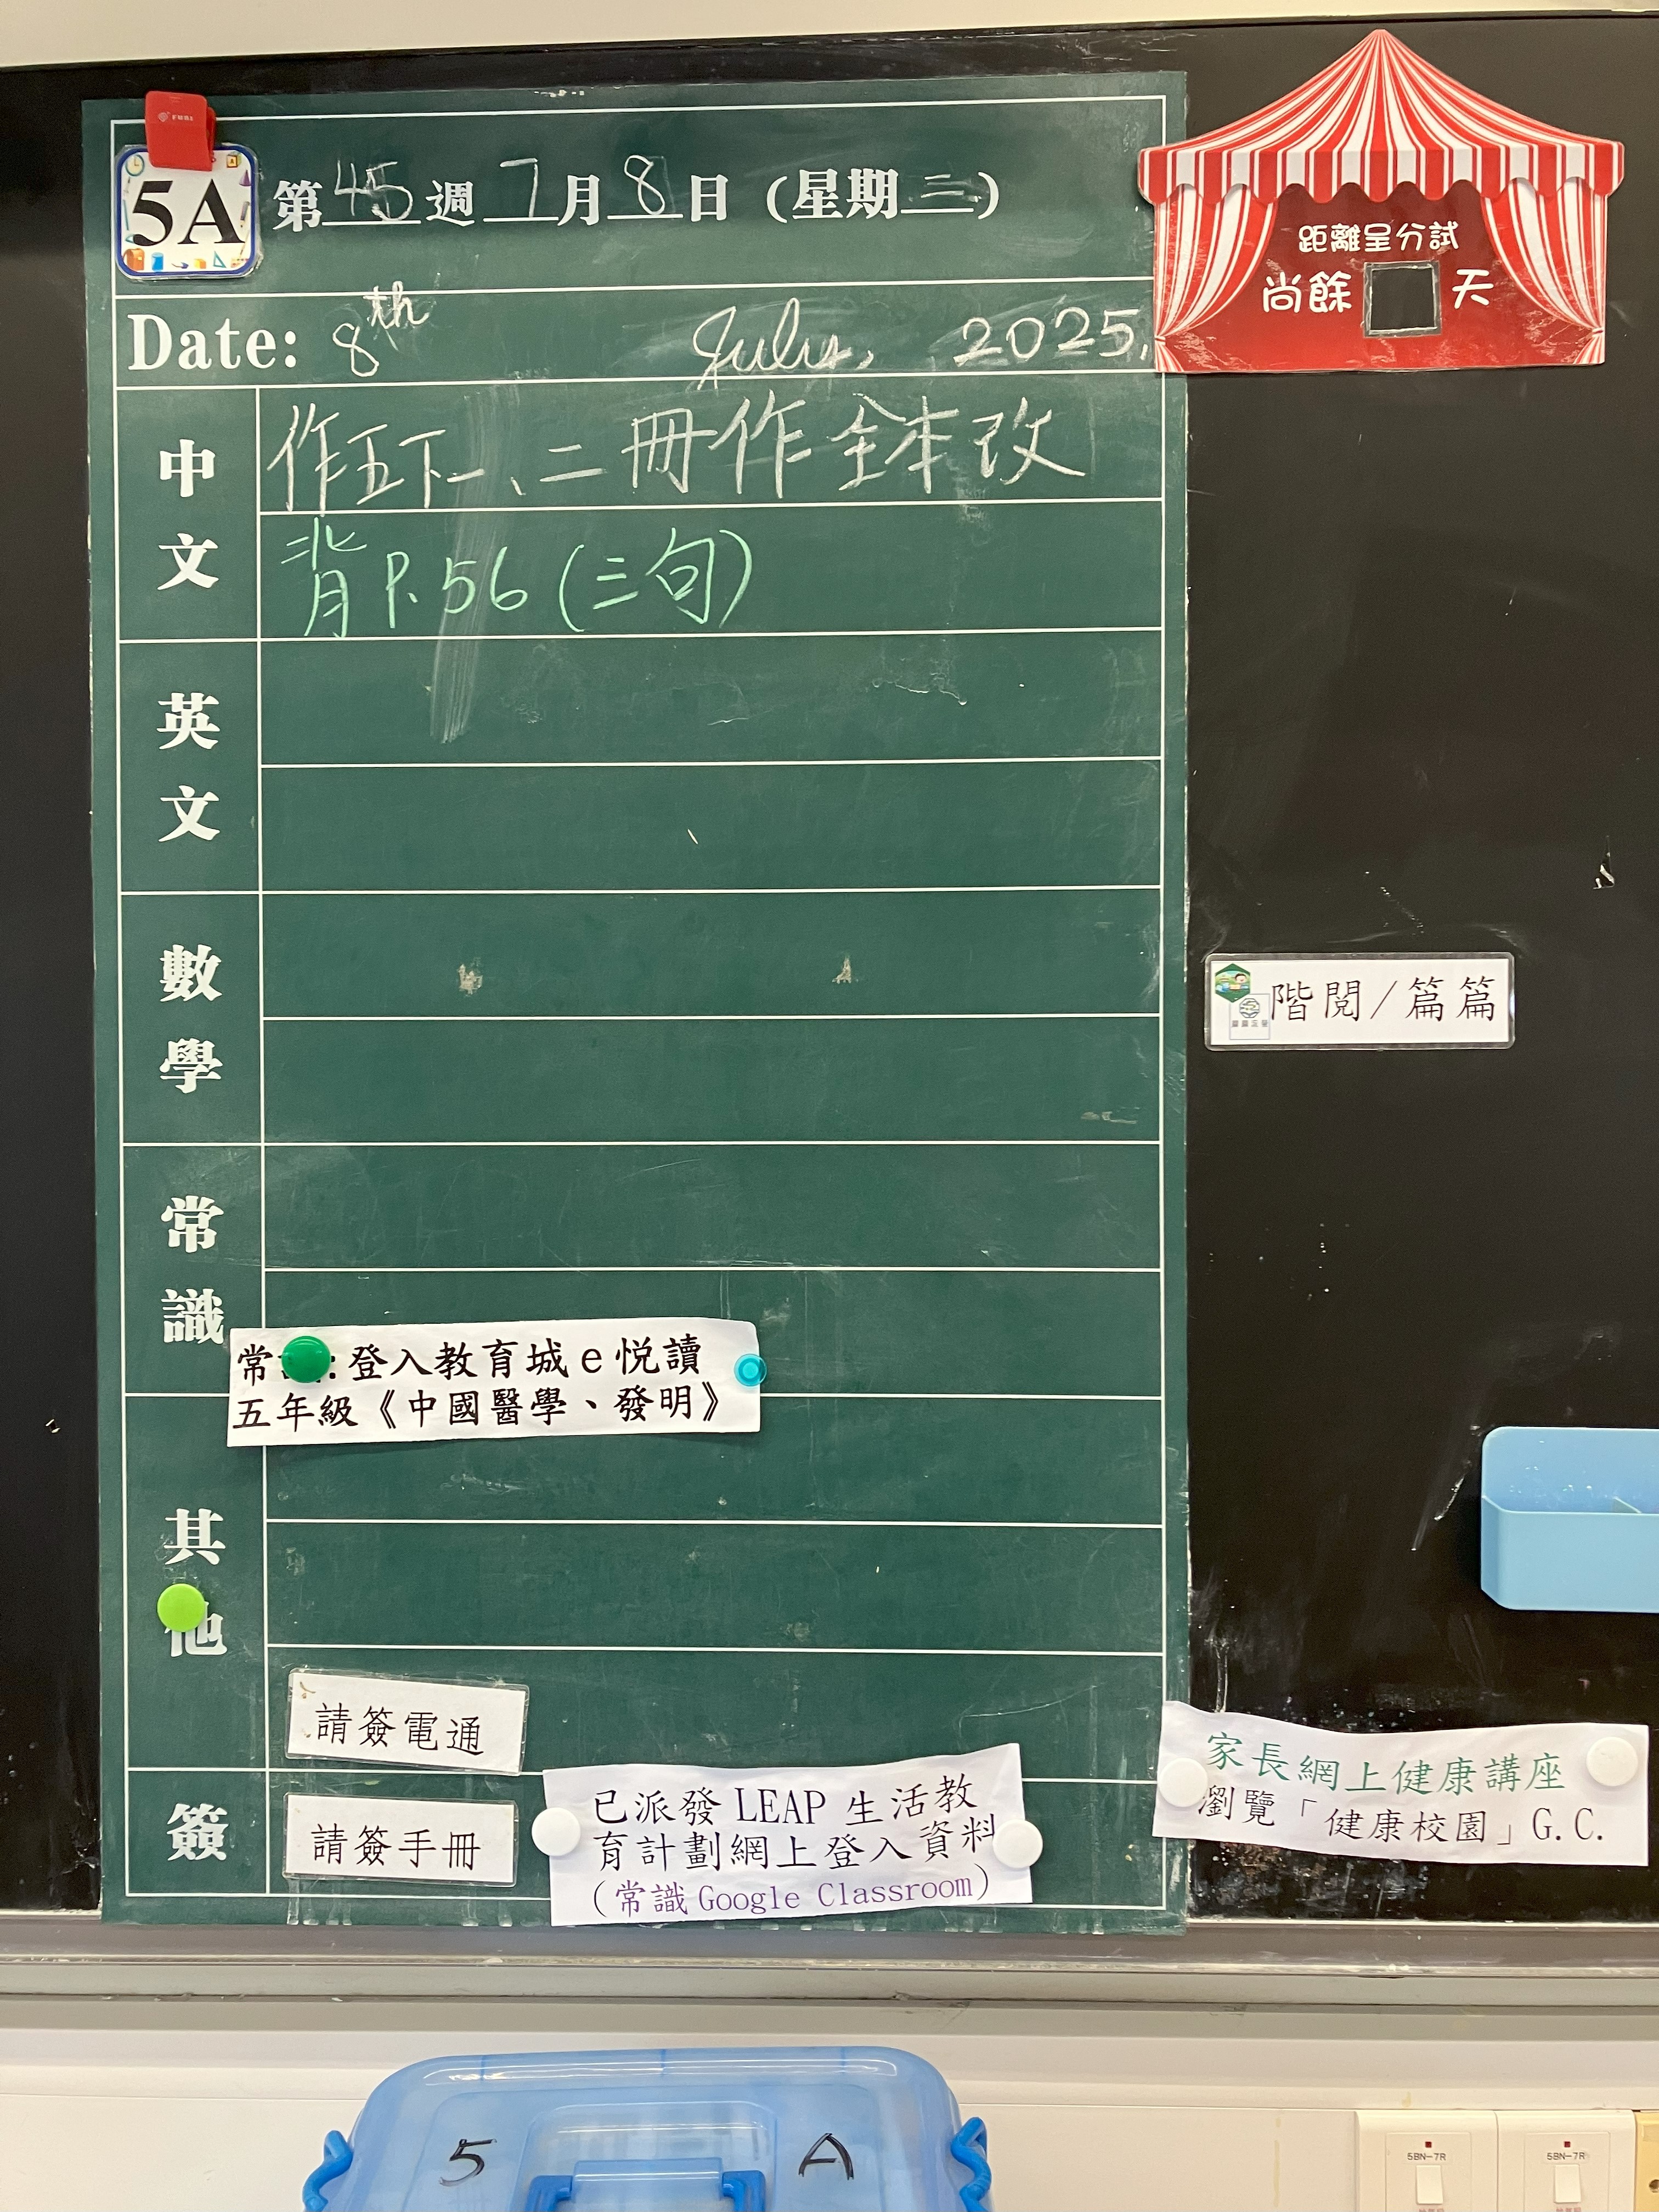 5A
第45週7月8日(星期二)
距離呈分試
尚餘 天
Date: 8th July, 2025,
中文
作五下一、二冊作全本改
背P.56(三句)
英文
數學
階閱/篇篇
常識
常 :登入教育城e悦讀
五年級《中國醫學、發明》
其他
請簽電通
簽
請簽手冊
已派發LEAP生活教
育計劃網上登入資料
(常識Google Classroom)
家長網上健康講座
瀏覽「健康校園」G.C.
5 A
5BN-7R
5BN-7R